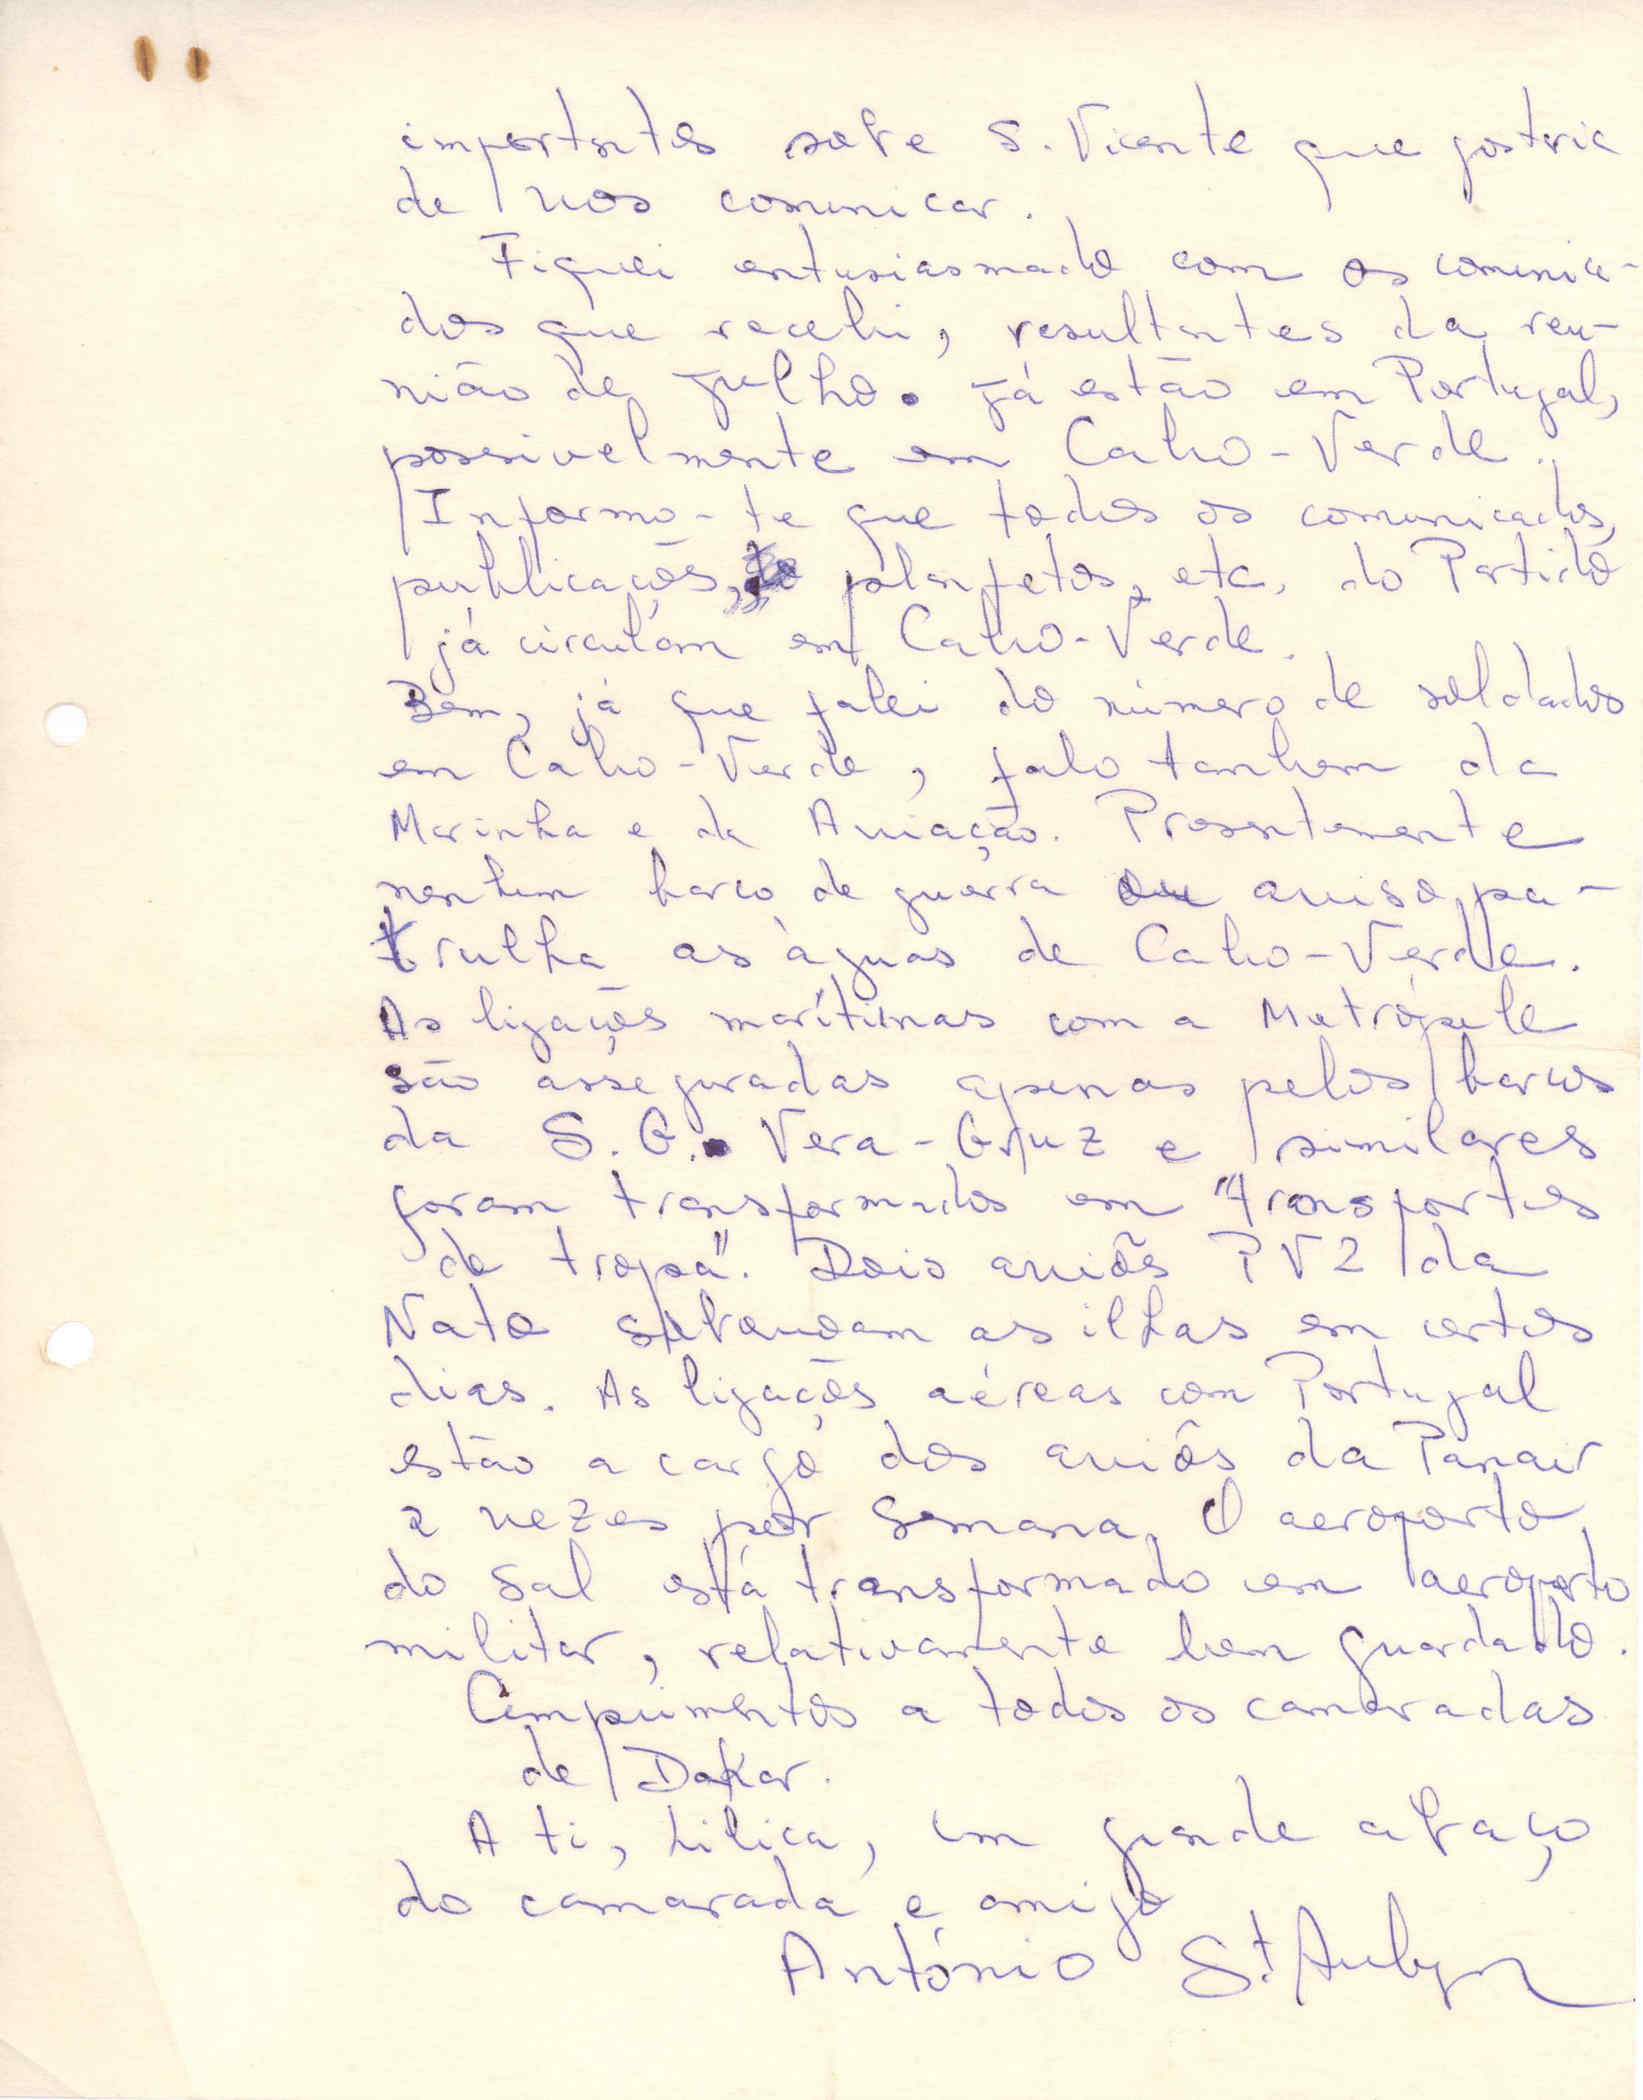 importantes sobre S. Vicente que gostaria
de vos comunicar.
Fiquei entusiasmado com os comunica-
dos que recebi, resultantes da reu-
nião de Julho. Já estão em Portugal,
possivelmente em Cabo-Verde.
Informo-te que todos os comunicados,
publicações, planfetos, etc. do Partido
já circulam em Cabo-Verde.
Bem, já que falei do número de soldados
em Cabo-Verde, falo tambem da
Marinha e da Aviação. Presentemente
nenhum barco de guerra ou aviso pa-
trulha as àguas de Cabo-Verde.
As ligações marítimas com a Metrópole
são asseguradas apenas pelos barcos
da S.G. Vera-Cruz e similares
foram transformados em "transportes
de tropa". Dois aviões PV2 da
Nato sobrevoam as ilhas em certos
dias. As ligações aéreas com Portugal
estão a cargo dos aviões da Panair
2 vezes por semana. O aeroporto
do Sal está transformado em aeroporto
militar, relativamente bem guardado.
Cumprimentos a todos os camaradas
de Dakar.
A ti, Lilica, um grande abraço
do camarada e amigo
António St. Aubyn